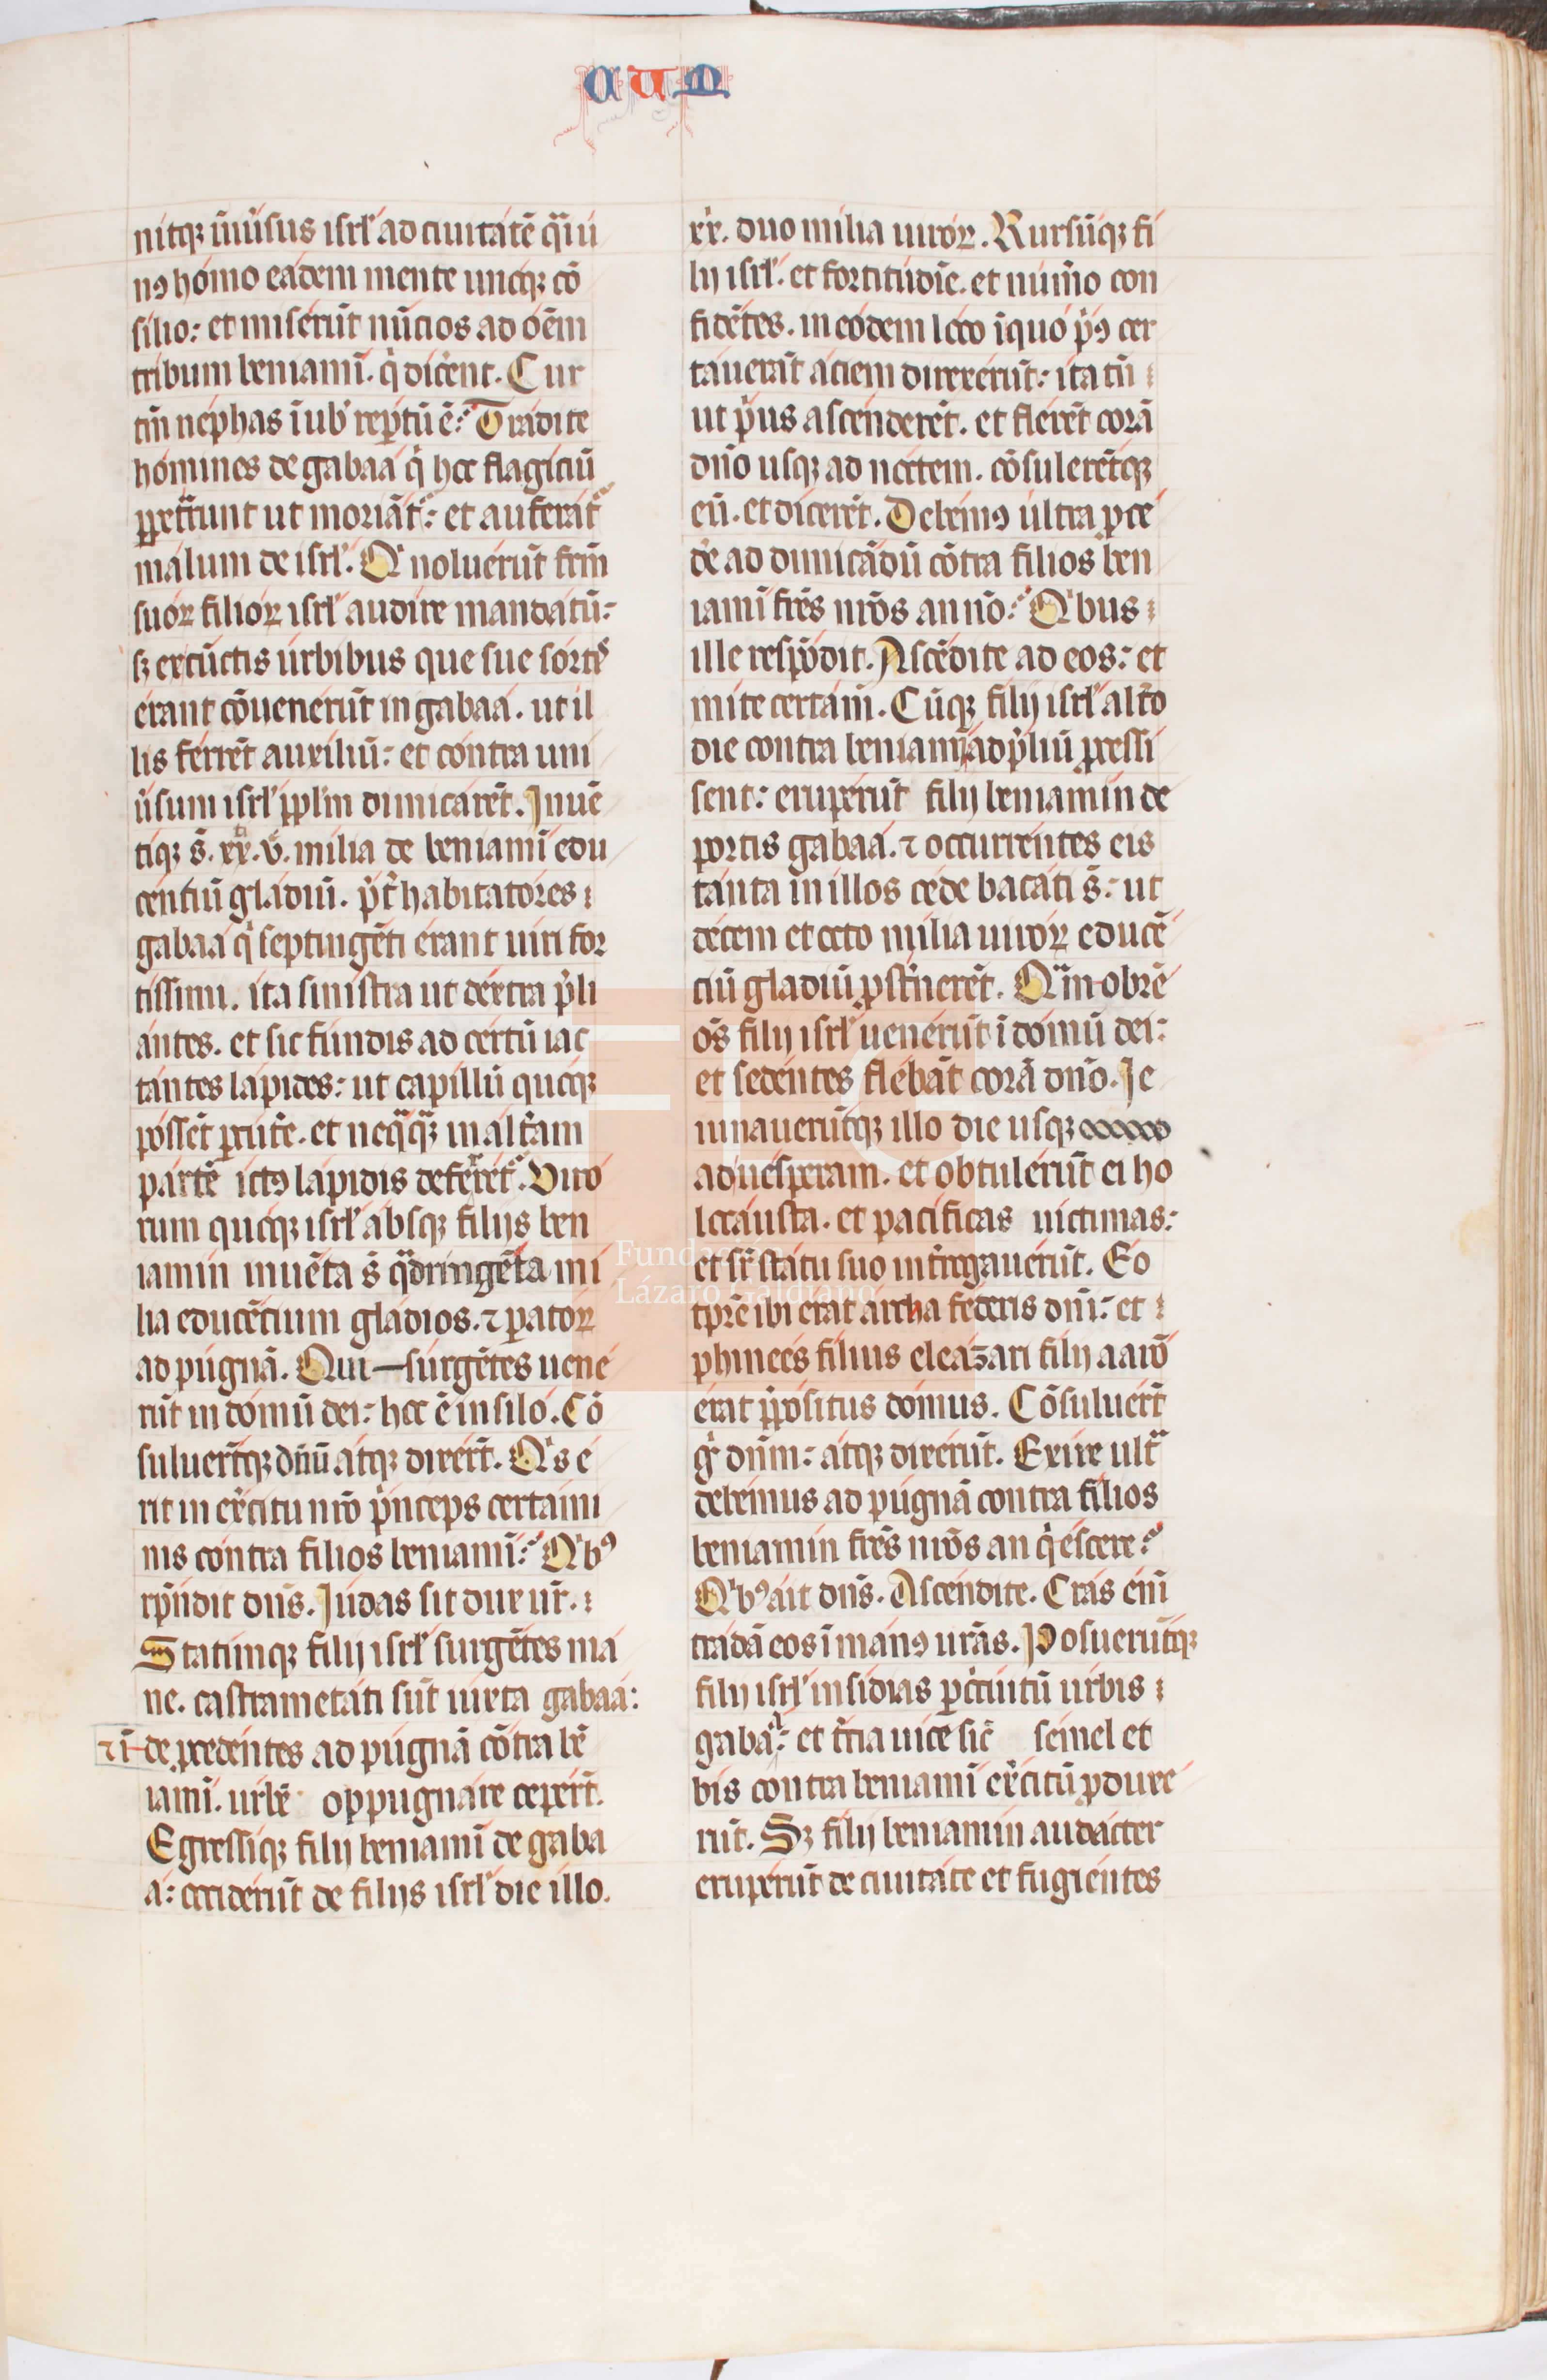 a u m
nitqꝫ ūiũsus isrł ad ciuitatē q̃si ú
nꝯ homo eadem mente unoqꝫ cō
silio: et miserūt nūcios ad oēm
tribum beniamī. q̇ dicēnt. Cur
tm̄ nephas ī uob̾ reptū ē? Tradite
homines de gabaa q̇ hoc flagiciū
ꝑpetrarunt ut moriāt᷑: et auferāt᷑
malum de isrł. Qⁱ noluerūt frm̄
suoꝝ filioꝝ isrł audire mandatū:
sꝫ ex cūctis urbibus que sue sortꝭ
erant cōuenerūt in gabaa. ut il
lis ferrēt auxiliū: et contra uni
ũsum isrł ppl̄m dimicarēt. Inuē
tiqꝫ s̄. xx. v̊. milia de beniamī edu
centiū gladiū. p̃t̃ habitatores
gabaa q̇ septingēti erant uiri for
tissimi. ita sinistra ut dextra p̃li
antes. et sic fundis ad certū iac
tantes lapides: ut capillū quoqꝫ
possēt ꝑcut̃e. et neq̃q̃ꝫ in alt̃am
partē ictꝯ lapidis defer̃ret᷑. Viro
rum quoqꝫ isrł absqꝫ filijs ben
iamin inuēta s̄ q̃dringēta mi
lia educētium gladios. ⁊ ꝑatoꝝ
ad pugnā. Qui — surgētes uene
rūt in domū dei: hoc ē in silo. Cō
suluer̄tqꝫ dn̄ū atqꝫ dixer̄t. Qⁱs e
rit in ex̃citu nr̄o p̃nceps certami
nis contra filios beniamī? Qⁱbꝯ
rn̄dit dn̄s. Judas sit dux ur̄.
Statimqꝫ filij isrł surgētes ma
ne. castrametati sūt iuxta gabaa:
⁊ ī de ꝓcedentes ad pugnā cōtra bē
iamī. urbē oppugnare ceper̄t.
Egressiqꝫ filij beniamī de gaba
a: occiderūt de filijs isrł die illo.
xx. duo milia uiroꝝ. Rursūqꝫ fi
lij isrł. et fortitudīe. et num̃o con
fidētes. in eodem loco ī quo p̃ꝯ cer
tauerāt aciem direxerūt: ita tn̄
ut p̃us ascenderēt. et flerēt corā
dn̄o usqꝫ ad noctem. cōsulerētqꝫ
eū. et dicerēt. Debemꝯ ultra ꝓce
de̾ ad dimicādū cōtra filios ben
iamī frēs nr̄os an nō? Qⁱbus
ille respōdit. Ascēdite ad eos: et
inite certam̄. Cūqꝫ filij isrł alt̃o
die contra beniamī ad p̃liū ꝓcessi
sent: eruperūt filij beniamin de
portis gabaa. ⁊ occurrentes eis
tanta in illos cede bacati s̄: ut
decem et octo milia uiroꝝ educē
ciū gladiū ꝓst̃nerēt. Qãm obrē
om̄s filij isrł uenerūt ī domū dei:
et sedentes flebāt corā dn̄o. Je
iunauerūtqꝫ illo die usqꝫ
ad uesperam. et obtulerūt ei ho
locausta. et pacificas uictimas:
et sr̃ statu suo int̃rogauerūt. Eo
tp̄re ibi erat archa federis dn̄i: et
phinees filius eleazari filij aarō
erat p̃positus domus. Cōsuluer̄t
gͦ dn̄m: atqꝫ dixerūt. Exire ultͣ
debemus ad pugnā contra filios
beniamin frēs nr̄os an q̇escere?
Qⁱbꝯ ait dn̄s. Ascendite. Cras enī
tradā eos ī manꝯ ur̄as. Posuerūtqꝫ
filij isrł insidias ꝑ circuitū urbis
gabaa: et t̃cia uice sic̄ semel et
bis contra beniamī ex̃citū ꝓduxe
rūt. Sꝫ filij beniamin audacter
eruperūt de ciuitate et fugientes
Fundación
Lázaro Galdiano